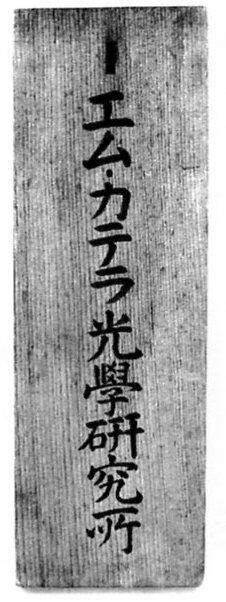 エム・カテラ光學研究所